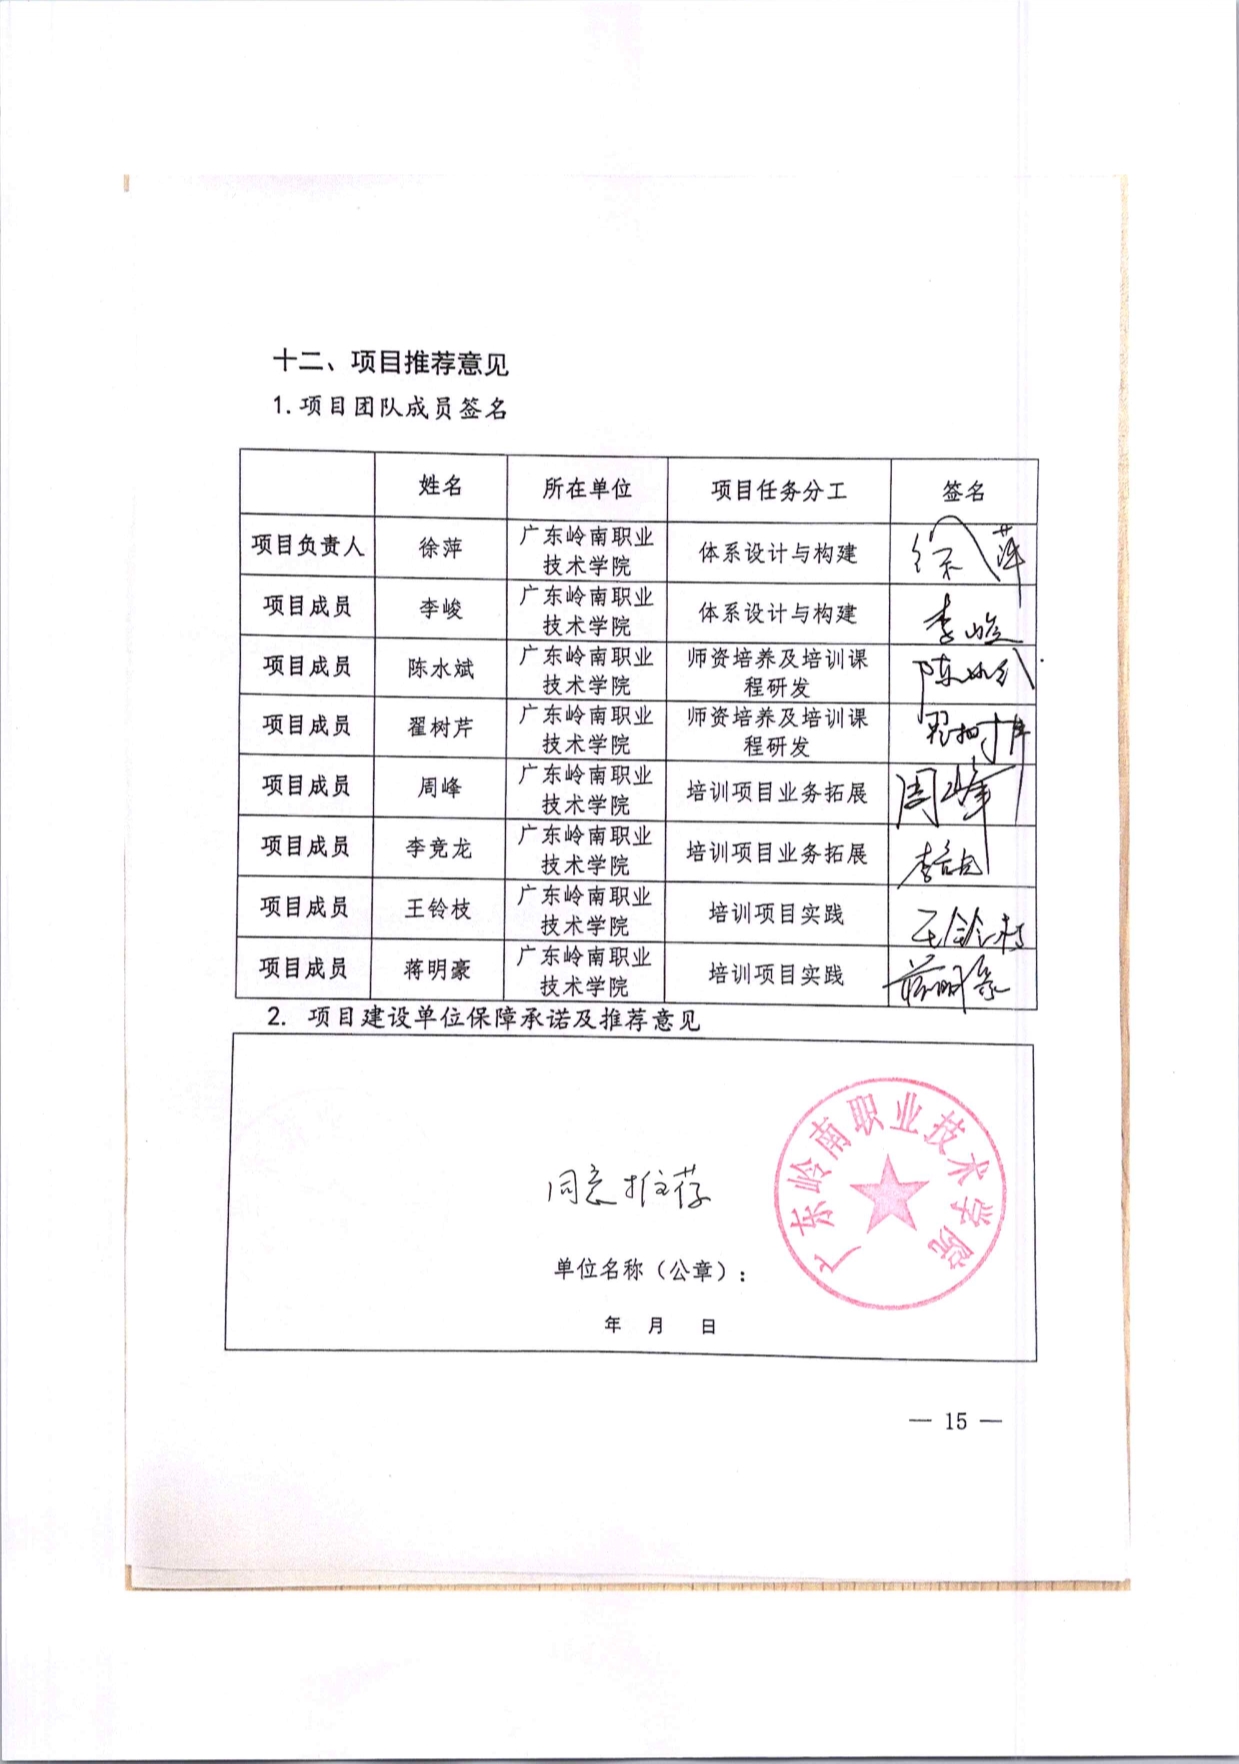 十二、项目推荐意见
1.项目团队成员签名
姓名 所在单位 项目任务分工 签名
项目负责人 徐萍 广东岭南职业技术学院 体系设计与构建 徐萍
项目成员 李峻 广东岭南职业技术学院 体系设计与构建 李峻
项目成员 陈水斌 广东岭南职业技术学院 师资培养及培训课程研发 陈水斌
项目成员 翟树芹 广东岭南职业技术学院 师资培养及培训课程研发 翟树芹
项目成员 周峰 广东岭南职业技术学院 培训项目业务拓展 周峰
项目成员 李竞龙 广东岭南职业技术学院 培训项目业务拓展 李竞龙
项目成员 王铃枝 广东岭南职业技术学院 培训项目实践 王铃枝
项目成员 蒋明豪 广东岭南职业技术学院 培训项目实践 蒋明豪
2. 项目建设单位保障承诺及推荐意见
同意推荐
广东岭南职业技术学院
单位名称（公章）：
年 月 日
— 15 —